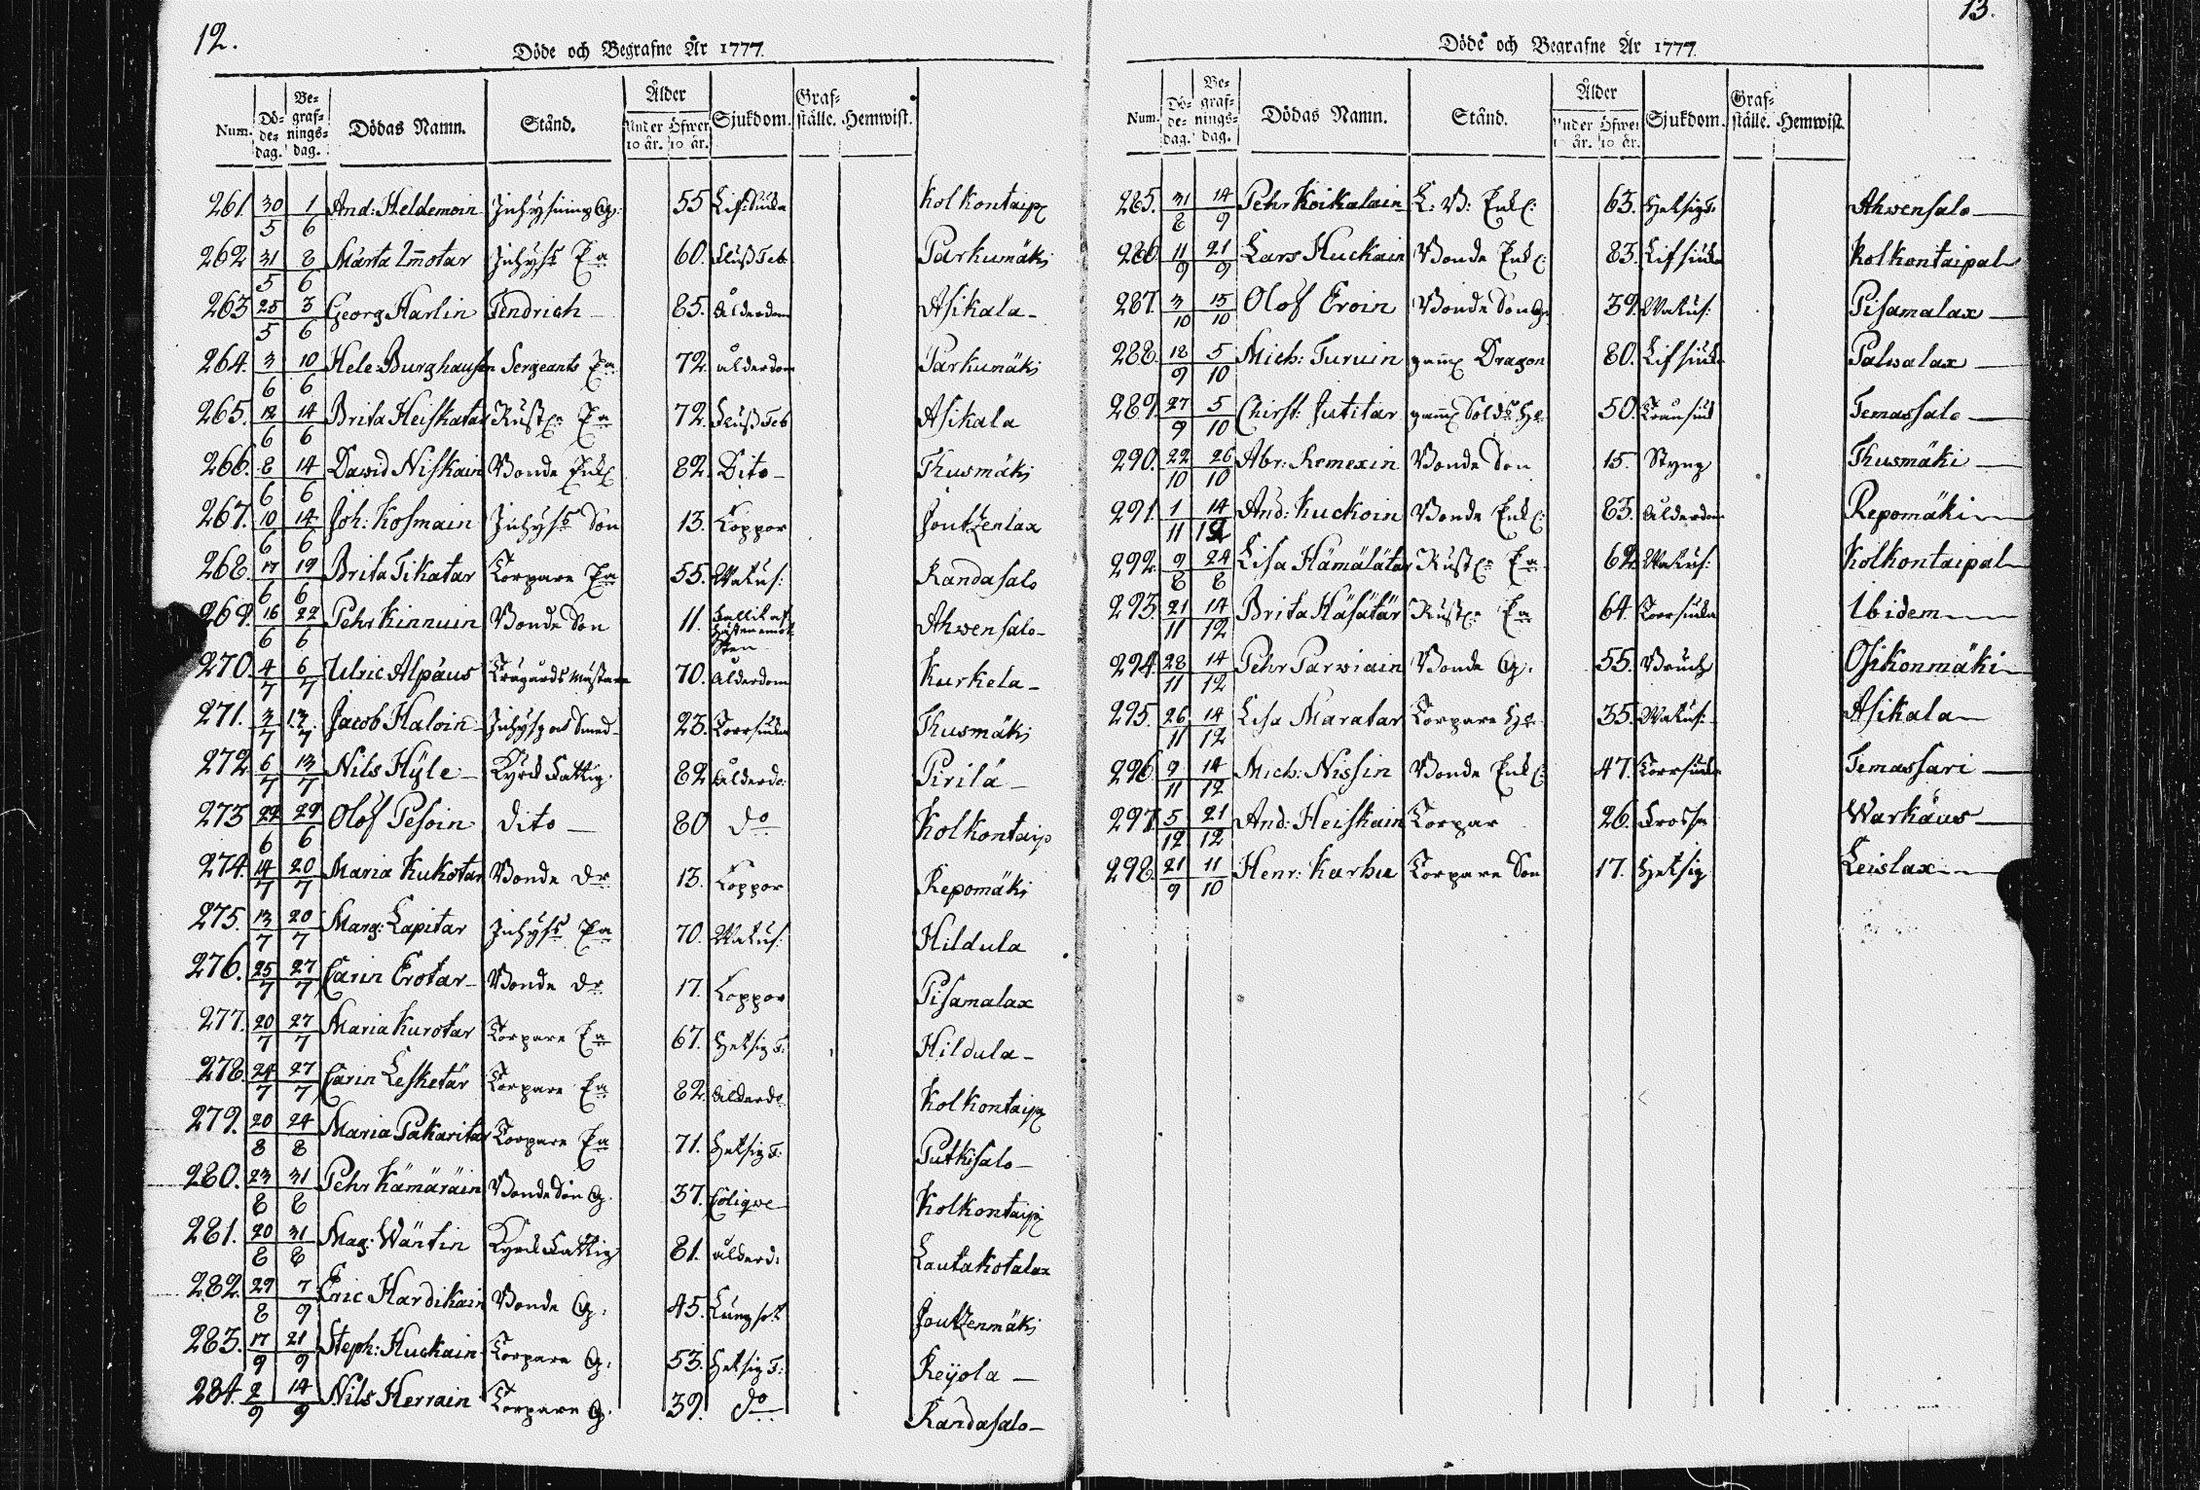 12.
Döde och Begrafne År 1777.
Num. Dö-de-dag. Be-graf-nings-dag. Dödas Namn. Stånd. Ålder Under 10 år. Öfwer 10 år. Sjukdom. Graf-ställe. Hemwist.
261 30/5 1/6 And: Heldemoin Inhysning G: 55 Lifsiuka Kolkontaip
262 31/5 8/6 Märta Imotar Inhyss Ea 60. Flußfeb Parkumäki
263 25/5 3/6 Georg Harlin Fendrich 85. Ålderdom Asikala
264. 3/6 10/6 Hele Burghausen Sergeants Ea 72. ålderdom Parkumäki
265. 12/6 14/6 Brita Heiskatar Rust: Ea 72. Flußfeb Asikala
266. 8/6 14/6 David Niskain Bonde Enkl 82. Dito Thusmäki
267. 10/6 14/6 Joh: Kosmain Inhyss Son 13. Koppor Joutzenlax
268. 17/6 19/6 Brita Tikatar Torpare Ea 55. Wattus: Randasalo
269. 16/6 22/6 Pehr Kinnuin Bonde Son 11. Fallit af Hästen emot Sten Ahwensalo
270. 4/7 6/7 Ulric Alpäus Trägårds Mästare 70. Ålderdom Kurkela
271. 3/7 13/7 Jacob Haloin Smed 23. Torrsiuka Thusmäki
272 6/7 13/7 Nils Hÿle Kyrck Fattig. 82 Ålderdo: Pirilä
273 22/6 29/6 Olof Pesoin dito 80 do Kolkontaip
274. 14/7 20/7 Maria Kukotar Bonde dr 13. Koppor Repomäki
275. 13/7 20/7 Marg: Lapitar Inhyss Ea 70. Wattus: Hildula
276. 25/7 27/7 Carin Erotar Bonde dr 17. Koppor Pisamalax
277. 20/7 27/7 Maria Kurotar Torpare Ea 67. Hetsig F: Hildula
278 24/7 27/7 Carin Lesketär Torpare Ea 82. Ålderdo Kolkontaip
279. 20/8 24/8 Maria Pakaritar Torpare Ea 71. Hetsig F: Putkisalo
280. 23/8 31/8 Pehr Kämäräin Bonde Son G. 37. Colique Kolkontaip
281. 20/8 31/8 Mag: Wäntin Kyrck Fattig 81. ålderd: Lautakotalax
282. 29/8 7/9 Eric Hardikain Bonde G: 45. Lungsot Joutzenmäki
283. 17/9 21/9 Steph: Huckain Torpare G: 53. Hetsig F: Reÿola
284. 2/9 14/9 Nils Herrain Torpare G. 39. do Randasalo
13.
Döde och Begrafne År 1777.
Num. Dö-de-dag. Be-graf-nings-dag. Dödas Namn. Stånd. Ålder Under år. Öfwer 10 år. Sjukdom. Graf-ställe. Hemwist.
285. 31/8 14/9 Pehr Koikalain L: B: Enkl: 63. Hetsig F: Ahwensalo
286 11/9 21/9 Lars Huckain Bonde Enkl: 83. Lifsiuka Kolkontaipal
287. 3/10 15/10 Olof Eroin Bonde Son G: 39. Wattus: Pisamalax
288. 18/9 5/10 Mich: Turuin gaml Dragon 80. Lifsiuka Palwalax
289. 27/9 5/10 Christ: Jutitar gaml Solds H: 50. Temassalo
290. 22/10 26/10 Abr: Remexin Bonde Son 15. Styng Thusmäki
291. 1/11 14/12 And: Kuckoin Bonde Enkl: 83. Ålderdom Repomäki
292. 9/8 24/8 Lisa Hämälätar Rust: Ea 62 Wattus: Kolkontaipal
293. 21/11 14/12 Brita Häsätär Rust: Ea 64. Torrsiuka Ibidem
294. 28/11 14/12 Pehr Parwiain Bonde G. 55. Bråck Osikonmäki
295. 26/11 14/12 Lisa Maratar Torpare H: 35. Wattus: Asikala
296 9/11 14/12 Mich: Nissin Bonde Enkl: 47. Torrsiuka Temassari
297 5/12 21/12 And: Heiskain Torpar 26. Frossa Warkäus
298. 21/9 11/10 Henr: Karhu Torpare Son 17. Hetsig Leislax